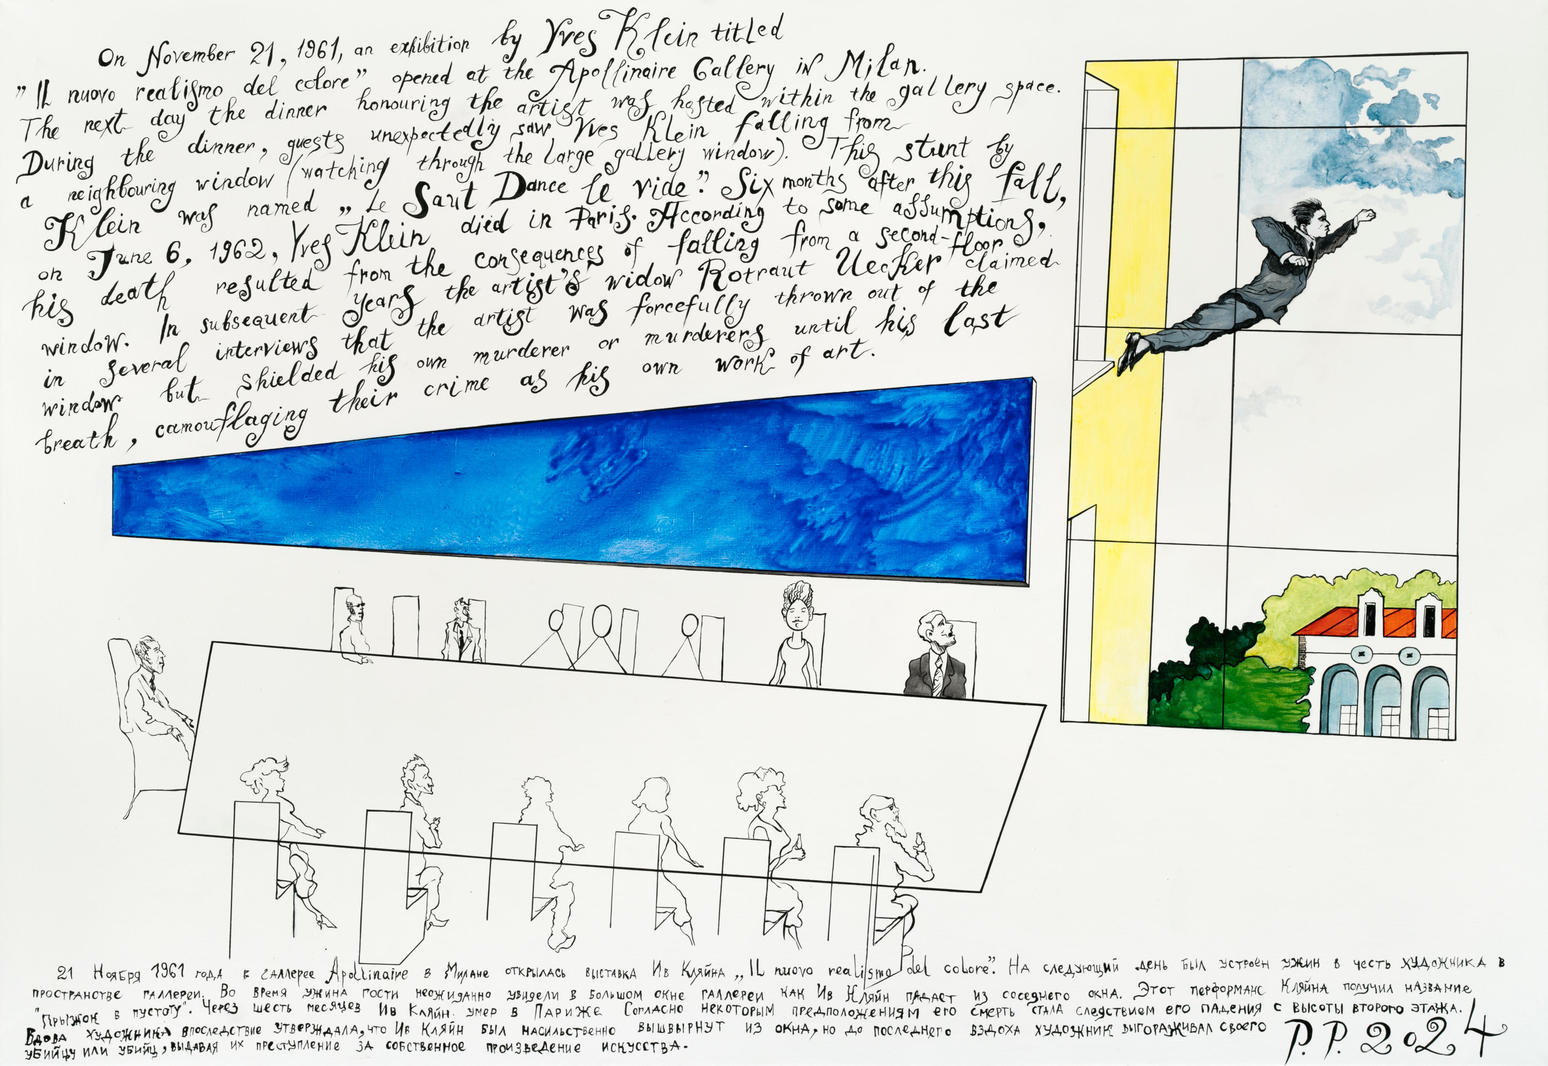 On November 21, 1961, an exhibition by Yves Klein titled
"IL nuovo realismo del colore" opened at the Apollinaire Gallery in Milan.
The next day the dinner honouring the artist was hosted within the gallery space.
During the dinner, guests unexpectedly saw Yves Klein falling from
a neighbouring window (watching through the large gallery window). This stunt by
Klein was named „Le Saut Dance le vide". Six months after this fall,
on June 6, 1962, Yves Klein died in Paris. According to some assumptions,
his death resulted from the consequences of falling from a second-floor
window. In subsequent years the artist's widow Rotraut Uecker claimed
in several interviews that the artist was forcefully thrown out of the
window but shielded his own murderer or murderers until his last
breath, camouflaging their crime as his own work of art.
21 Ноября 1961 года в галлерее Apollinaire в Милане открылась выставка Ив Кляйна „IL nuovo realismo del colore". На следующий день был устроен ужин в честь художника в
пространстве галлереи. Во время ужина гости неожиданно увидели в большом окне галлереи как Ив Кляйн падает из соседнего окна. Этот перформанс Кляйна получил название
"Прыжок в пустоту". Через шесть месяцев Ив Кляйн умер в Париже Согласно некоторым предположениям его смерть стала следствием его падения с высоты второго этажа.
Вдова художника впоследствие утверждала, что Ив Кляйн был насильственно вышвырнут из окна, но до последнего вздоха художник выгораживал своего
убийцу или убийц, выдавая их преступление за собственное произведение искусства.
P.P. 2024